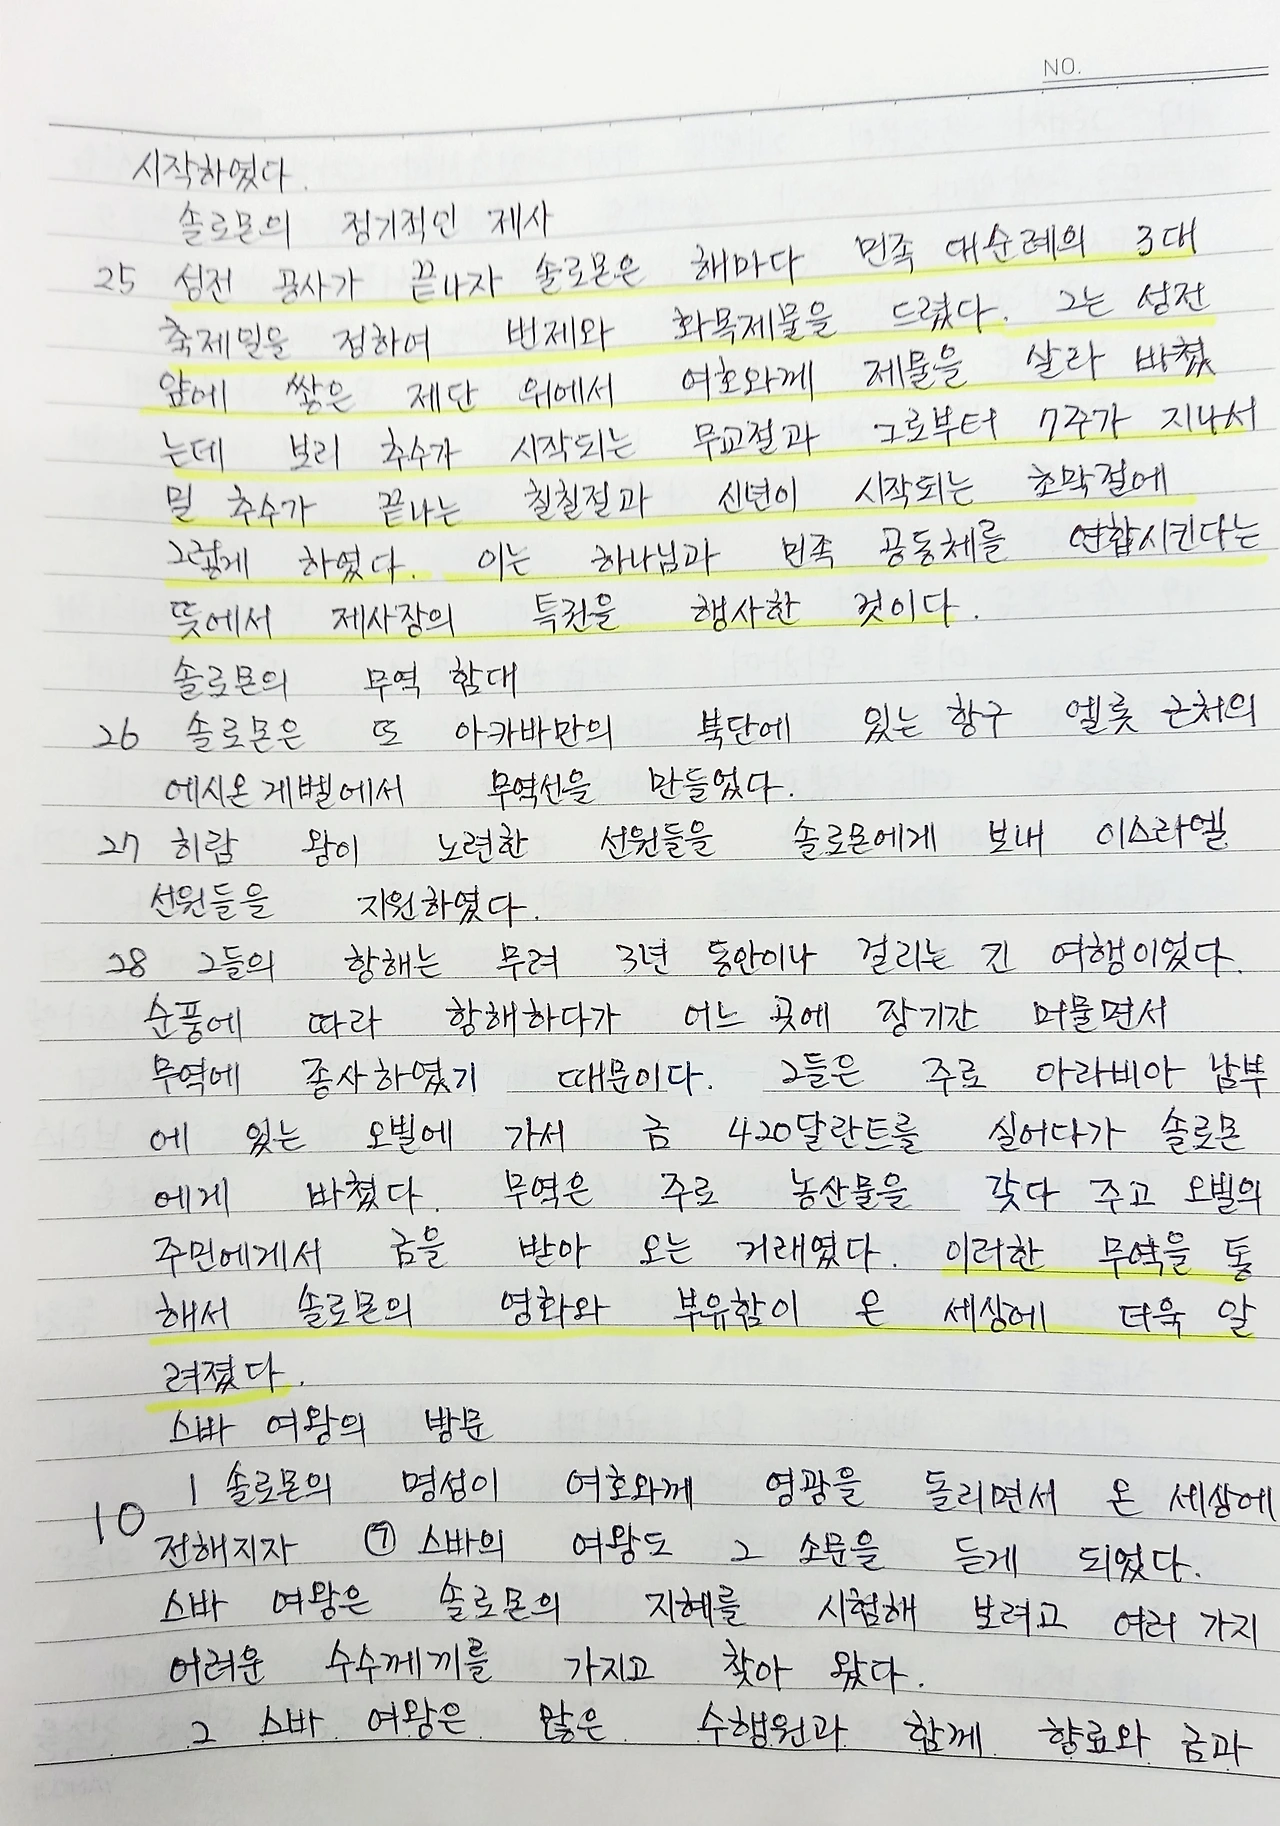 NO.
시작하였다.
솔로몬의 정기적인 제사
25 성전 공사가 끝나자 솔로몬은 해마다 민족 대순례의 3대
축제일을 정하여 번제와 화목제물을 드렸다. 그는 성전
앞에 쌓은 제단 위에서 여호와께 제물을 살라 바쳤
는데 보리 추수가 시작되는 무교절과 그로부터 7주가 지나서
밀 추수가 끝나는 칠칠절과 신년이 시작되는 초막절에
그렇게 하였다. 이는 하나님과 민족 공동체를 연합시킨다는
뜻에서 제사장의 특권을 행사한 것이다.
솔로몬의 무역 함대
26 솔로몬은 또 아카바만의 북단에 있는 항구 엘롯 근처의
에시온게벨에서 무역선을 만들었다.
27 히람 왕이 노련한 선원들을 솔로몬에게 보내 이스라엘
선원들을 지원하였다.
28 그들의 항해는 무려 3년 동안이나 걸리는 긴 여행이었다.
순풍에 따라 항해하다가 어느 곳에 장기간 머물면서
무역에 종사하였기 때문이다. 그들은 주로 아라비아 남부
에 있는 오빌에 가서 금 420달란트를 실어다가 솔로몬
에게 바쳤다. 무역은 주로 농산물을 갖다 주고 오빌의
주민에게서 금을 받아 오는 거래였다. 이러한 무역을 통
해서 솔로몬의 영화와 부유함이 온 세상에 더욱 알
려졌다.
스바 여왕의 방문
10 1 솔로몬의 명성이 여호와께 영광을 돌리면서 온 세상에
전해지자 ⑦ 스바의 여왕도 그 소문을 듣게 되었다.
스바 여왕은 솔로몬의 지혜를 시험해 보려고 여러 가지
어려운 수수께끼를 가지고 찾아 왔다.
2 스바 여왕은 많은 수행원과 함께 향료와 금과